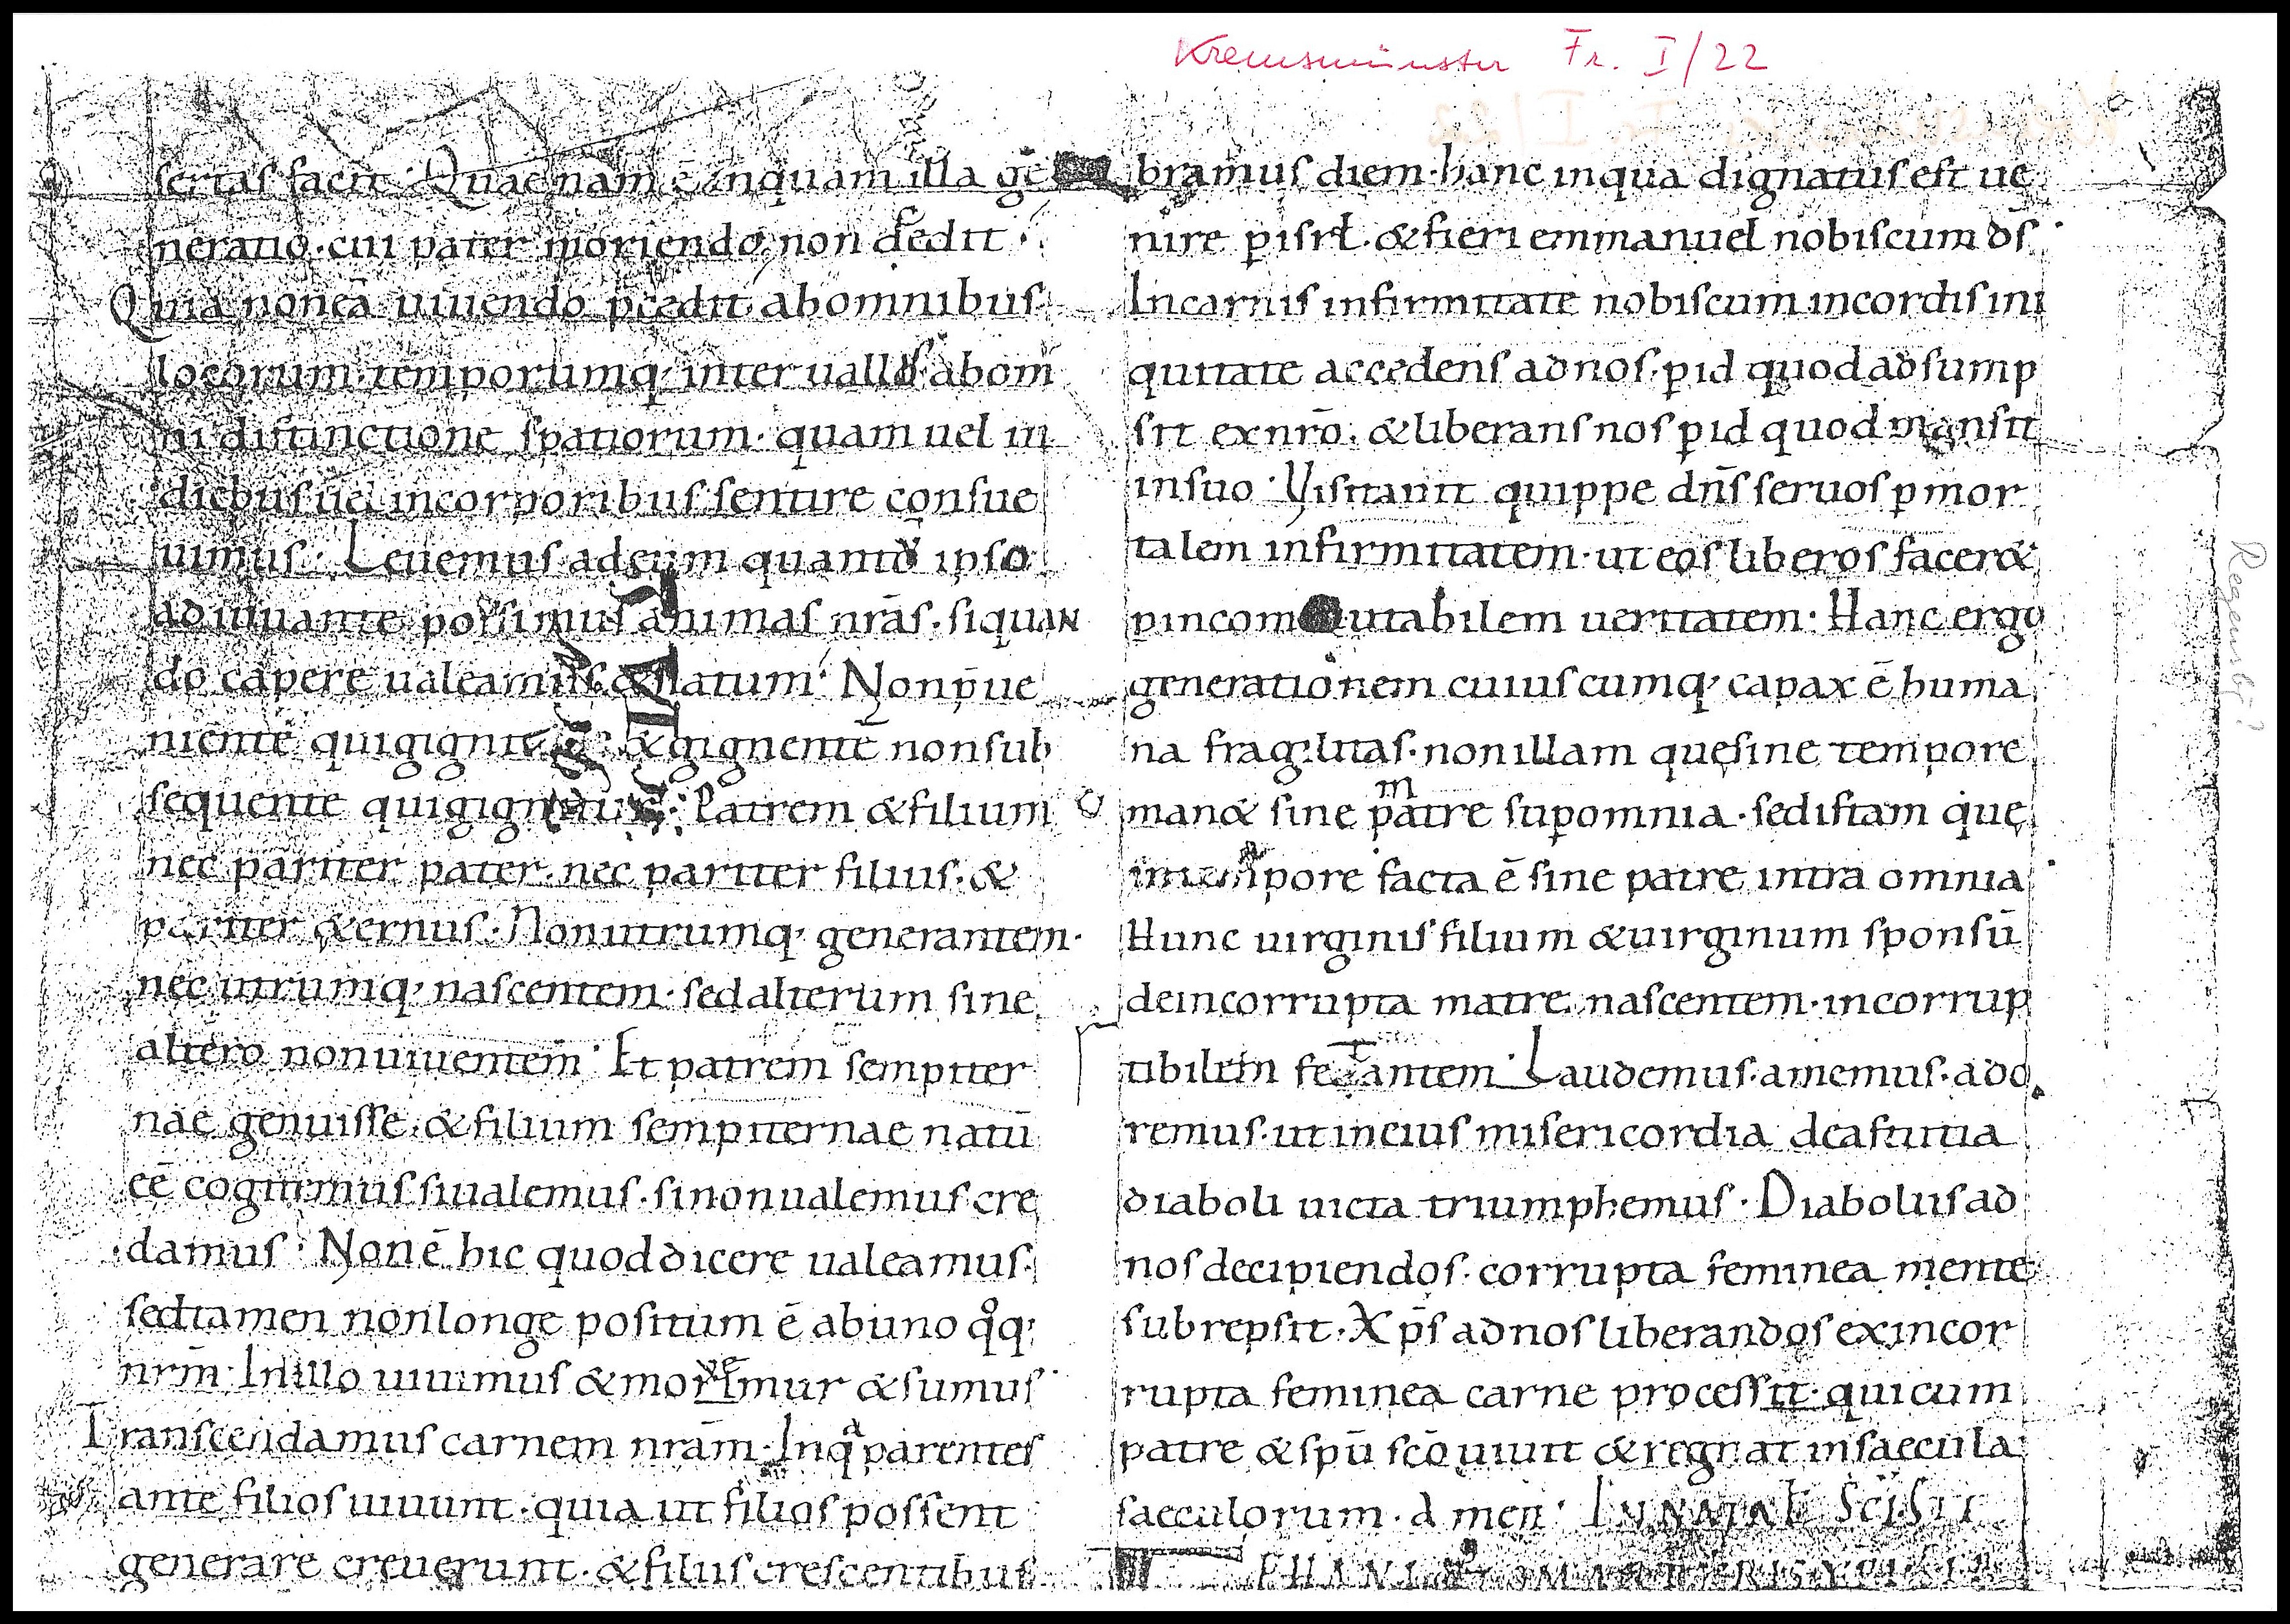 Kremsmünster Fr. I/22
sertas facit · Quae nam ē inquam illa ge
neratio · cui pater moriendo non cedit ·
Quia non eā uiuendo p̄cedit ab omnibus
locorum temporumq; interuallis ab om
ni distinctione spatiorum · quam uel in
diebus uel in corporibus sentire consue
uimus · Leuemus ad eum quantū ipso
adiuuante possimus animas nr̄as · siquan
do capere ualeamus & natum · Non p̄ue
niente qui gignit · & gignente non sub
sequente qui gignitur · Patrem & filium
nec pariter pater · nec pariter filius · &
pariter & ernus · Non utrumq; generantem ·
nec utrumq; nascentem · sed alterum sine
altero non uiuentem · Et patrem sempiter
nae genuisse · & filium sempiternae natū
eē cogitemus si ualemus · si non ualemus cre
damus · Non ē hic quod dicere ualeamus ·
sed tamen non longe positum ē ab uno qoq;
nrm̄ · In illo uiuimus & mouemur & sumus
Transcendamus carnem nrām · In qa parentes
ante filios uiuunt · quia ut filios possent
generare creuerunt · & filiis crescentibus
bramus diem · hanc in qua dignatus est ue
nire p isrł · & fieri emmanuel nobiscum d̄s
In carnis infirmitate nobiscum in cordis ini
quitate accedens ad nos · p id quod adsump
sit ex nrō · & liberans nos p id quod mansit
in suo · Visitauit quippe dn̄s seruos p mor
talem infirmitatem · ut eos liberos facer&
p incommutabilem ueritatem · Hanc ergo
generationem cuiuscumq; capax ē huma
na fragilitas · non illam quę sine tempore
man& sine matre sup omnia · sed istam quę
in tempore facta ē sine patre intra omnia
Hunc uirginis filium & uirginum sponsū
de incorrupta matre nascentem · incorrup
tibilem fetantem · Laudemus · amemus · ado
remus · ut in eius misericordia de astutia
diaboli uicta triumphemus · Diabolus ad
nos decipiendos · corrupta feminea mente
subrepsit · Xp̄s ad nos liberandos ex incor
rupta feminea carne processit · qui cum
patre & sp̄u scō uiuit & regnat in saecula
saeculorum · amen · IN NATAƚ SCI STE
PHANI
Regensbg?